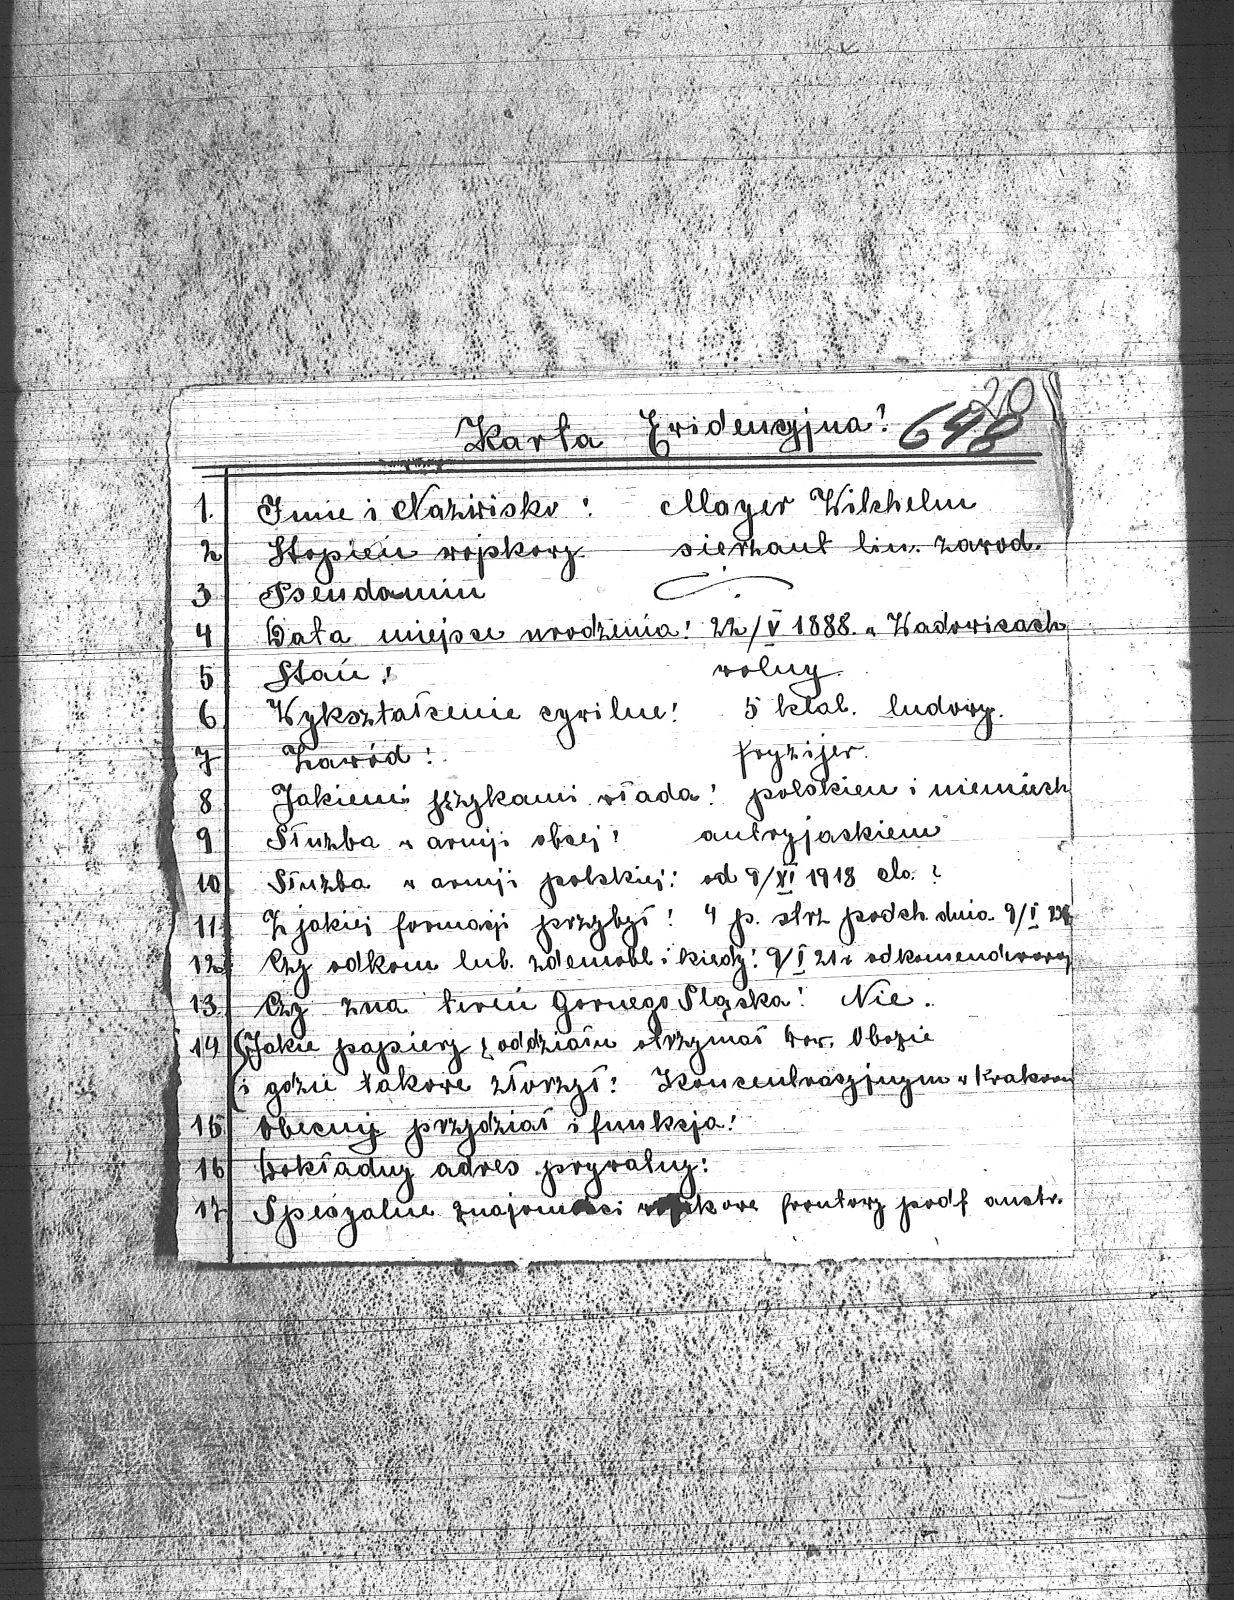 20
Karta Ewidencyjna! 648
1. Imie i Nazwisko! Mayer Wilhelm
2 Stopień wojskowy sierżant lin. zawod.
3 Pseudomin
4 Data miejsce urodzenia! 22/V 1888. w Wadowicach
5 Stan! wolny.
6 Wykształcenie cywilne! 5 klas. ludowy.
7 Zawód! fryzijer.
8 Jakiemi językami włada! polskiem i niemiech
9 Służba w armji obcej! austryjaskiem
10. Służba w armji polskiej! od 9/XI 1918 do. ?
11. Z jakiej formacji przybył! 4 p. strz podch. dnia. 9/I
12. Czy odkom lub. zdemobl i kiedy! 9/I 21 r odkomenderowany
13. Czy zna tereń Gornego Sląska! Nie.
14 Jakie papiery z oddziału otrzymał Dow. Obozie
i gdzie takowe złorzył! Koncentracyjnym w Krakow
15. Obecnij przydział i funkcja!
16 Dokładny adres prywatny!
17. Specyalne znajomości frontowy podf austr.